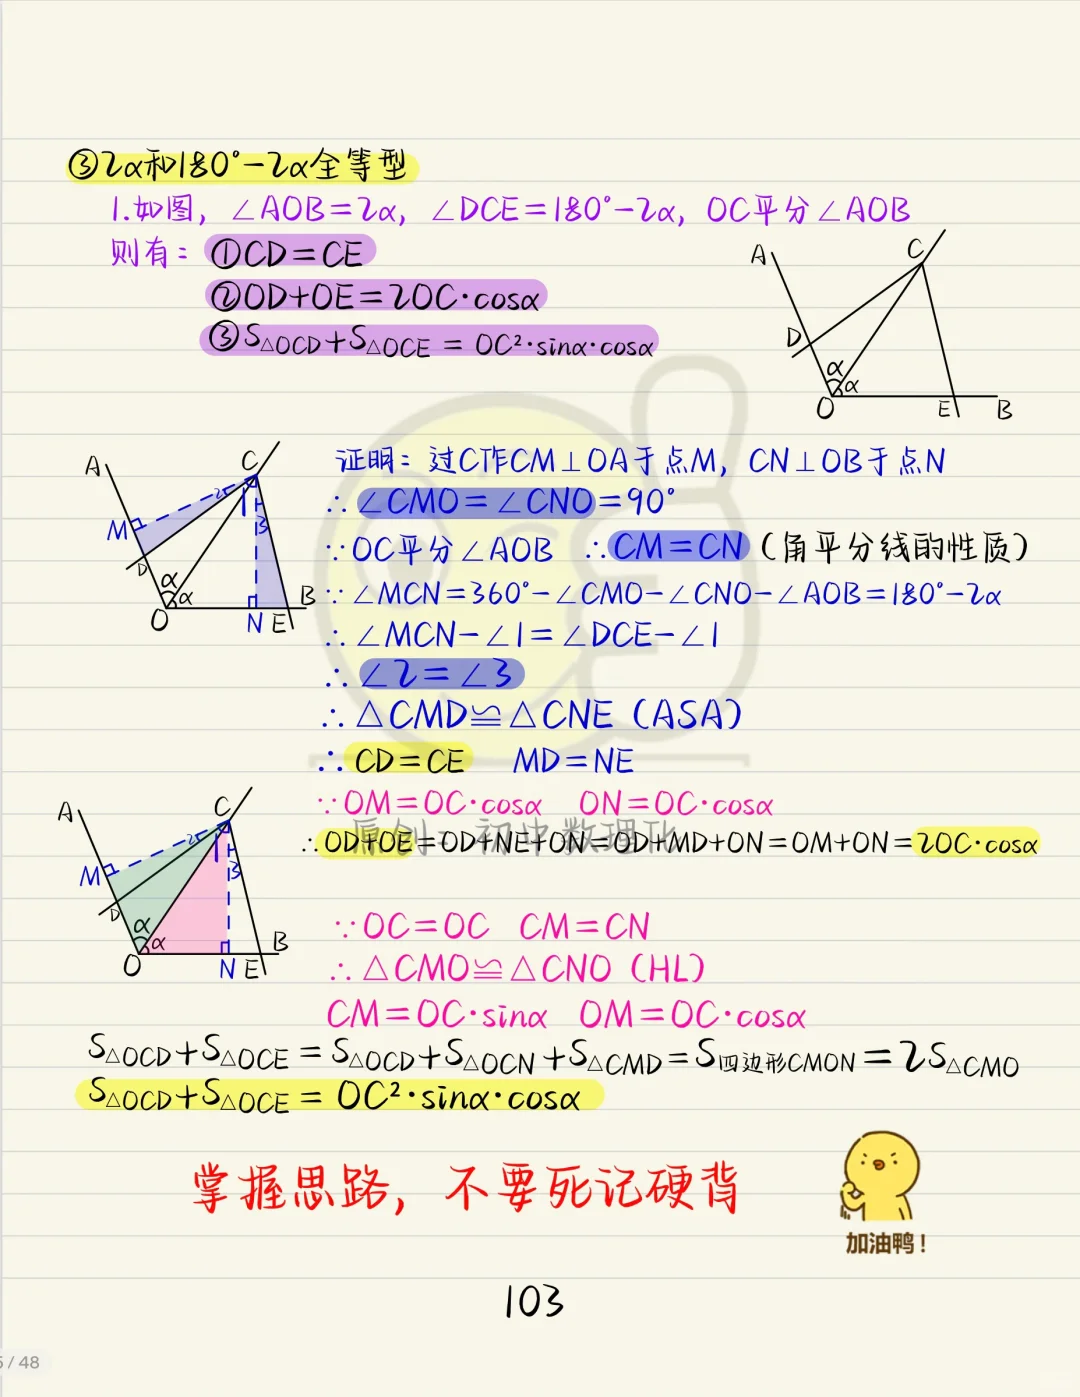 ③2α和180°-2α全等型
1.如图，∠AOB=2α，∠DCE=180°-2α，OC平分∠AOB
则有：①CD=CE
②OD+OE=2OC·cosα
③S△OCD+S△OCE = OC²·sinα·cosα
A
C
D
α
α
O
E
B
证明：过C作CM⊥OA于点M，CN⊥OB于点N
∴∠CMO=∠CNO=90°
∵OC平分∠AOB ∴CM=CN（角平分线的性质）
∵∠MCN=360°-∠CMO-∠CNO-∠AOB=180°-2α
∴∠MCN-∠1=∠DCE-∠1
∴∠2=∠3
∴△CMD≌△CNE（ASA）
∴CD=CE MD=NE
A
C
2
1
3
M
D
α
α
O
N
E
B
∵OM=OC·cosα ON=OC·cosα
∴OD+OE=OD+NE+ON=OD+MD+ON=OM+ON=2OC·cosα
原创：初中数理化
A
C
2
1
3
M
D
α
α
O
N
E
B
∵OC=OC CM=CN
∴△CMO≌△CNO（HL）
CM=OC·sinα OM=OC·cosα
S△OCD+S△OCE = S△OCD+S△OCN+S△CMD=S四边形CMON=2S△CMO
S△OCD+S△OCE = OC²·sinα·cosα
掌握思路，不要死记硬背
加油鸭！
103
/ 48